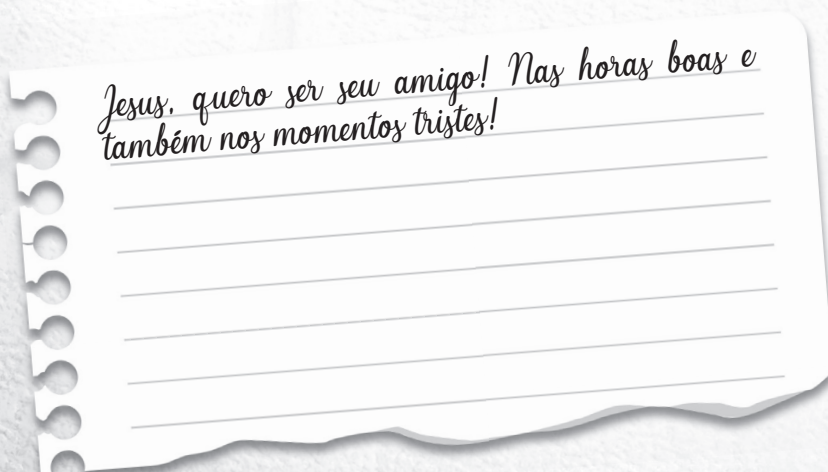 Jesus, quero ser seu amigo! Nas horas boas e
também nos momentos tristes!